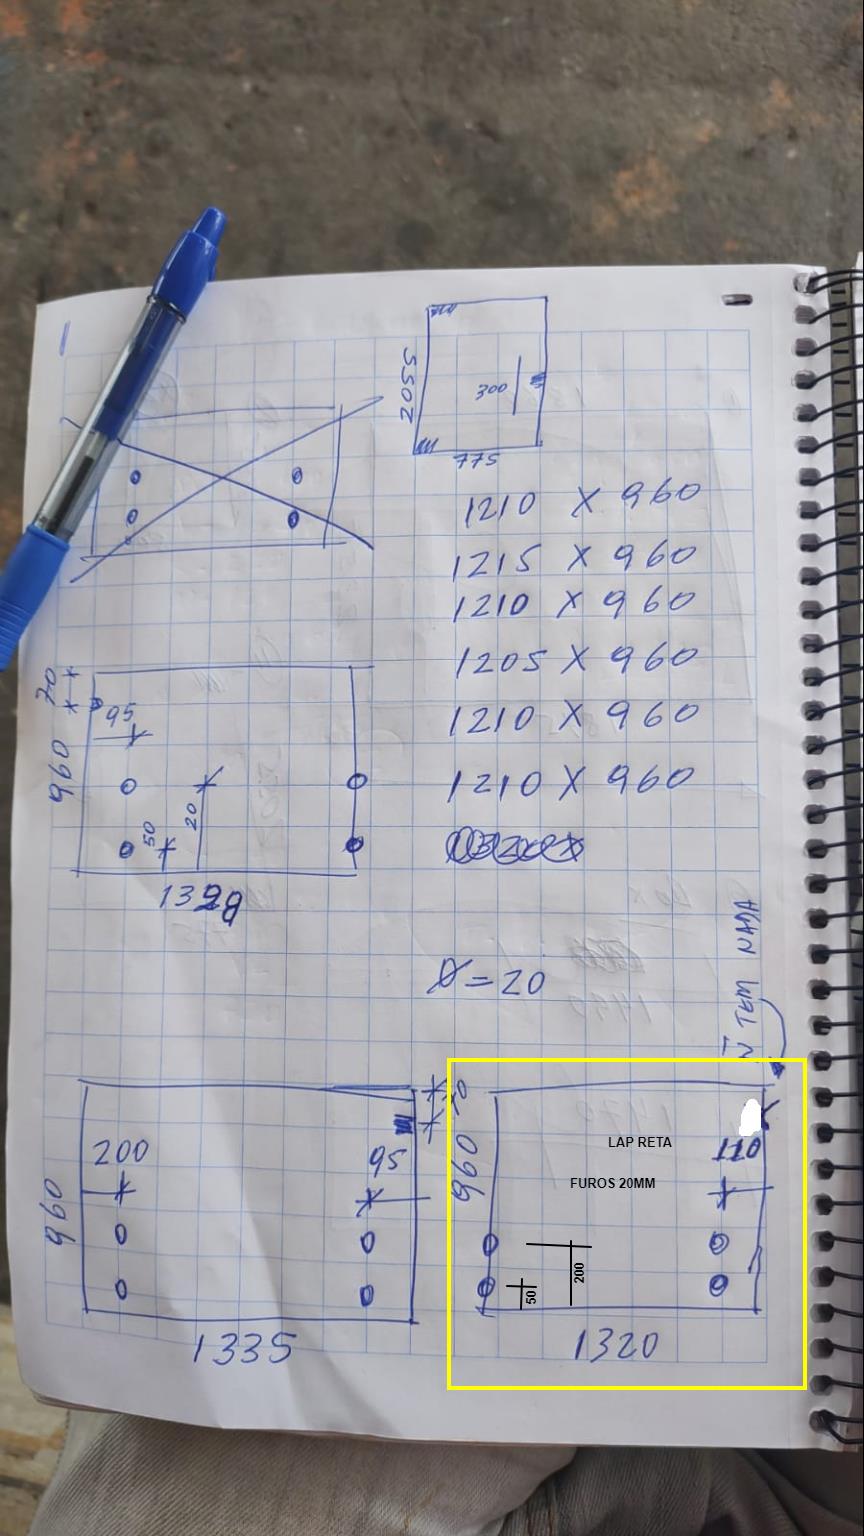 2055
300
775
1210 X 960
1215 X 960
1210 X 960
1205 X 960
1210 X 960
1210 X 960
70
95
960
50
20
Ø=20
N̄ TEM NADA
200
95
960
1335
70
960
LAP RETA
110
FUROS 20MM
200
50
1320